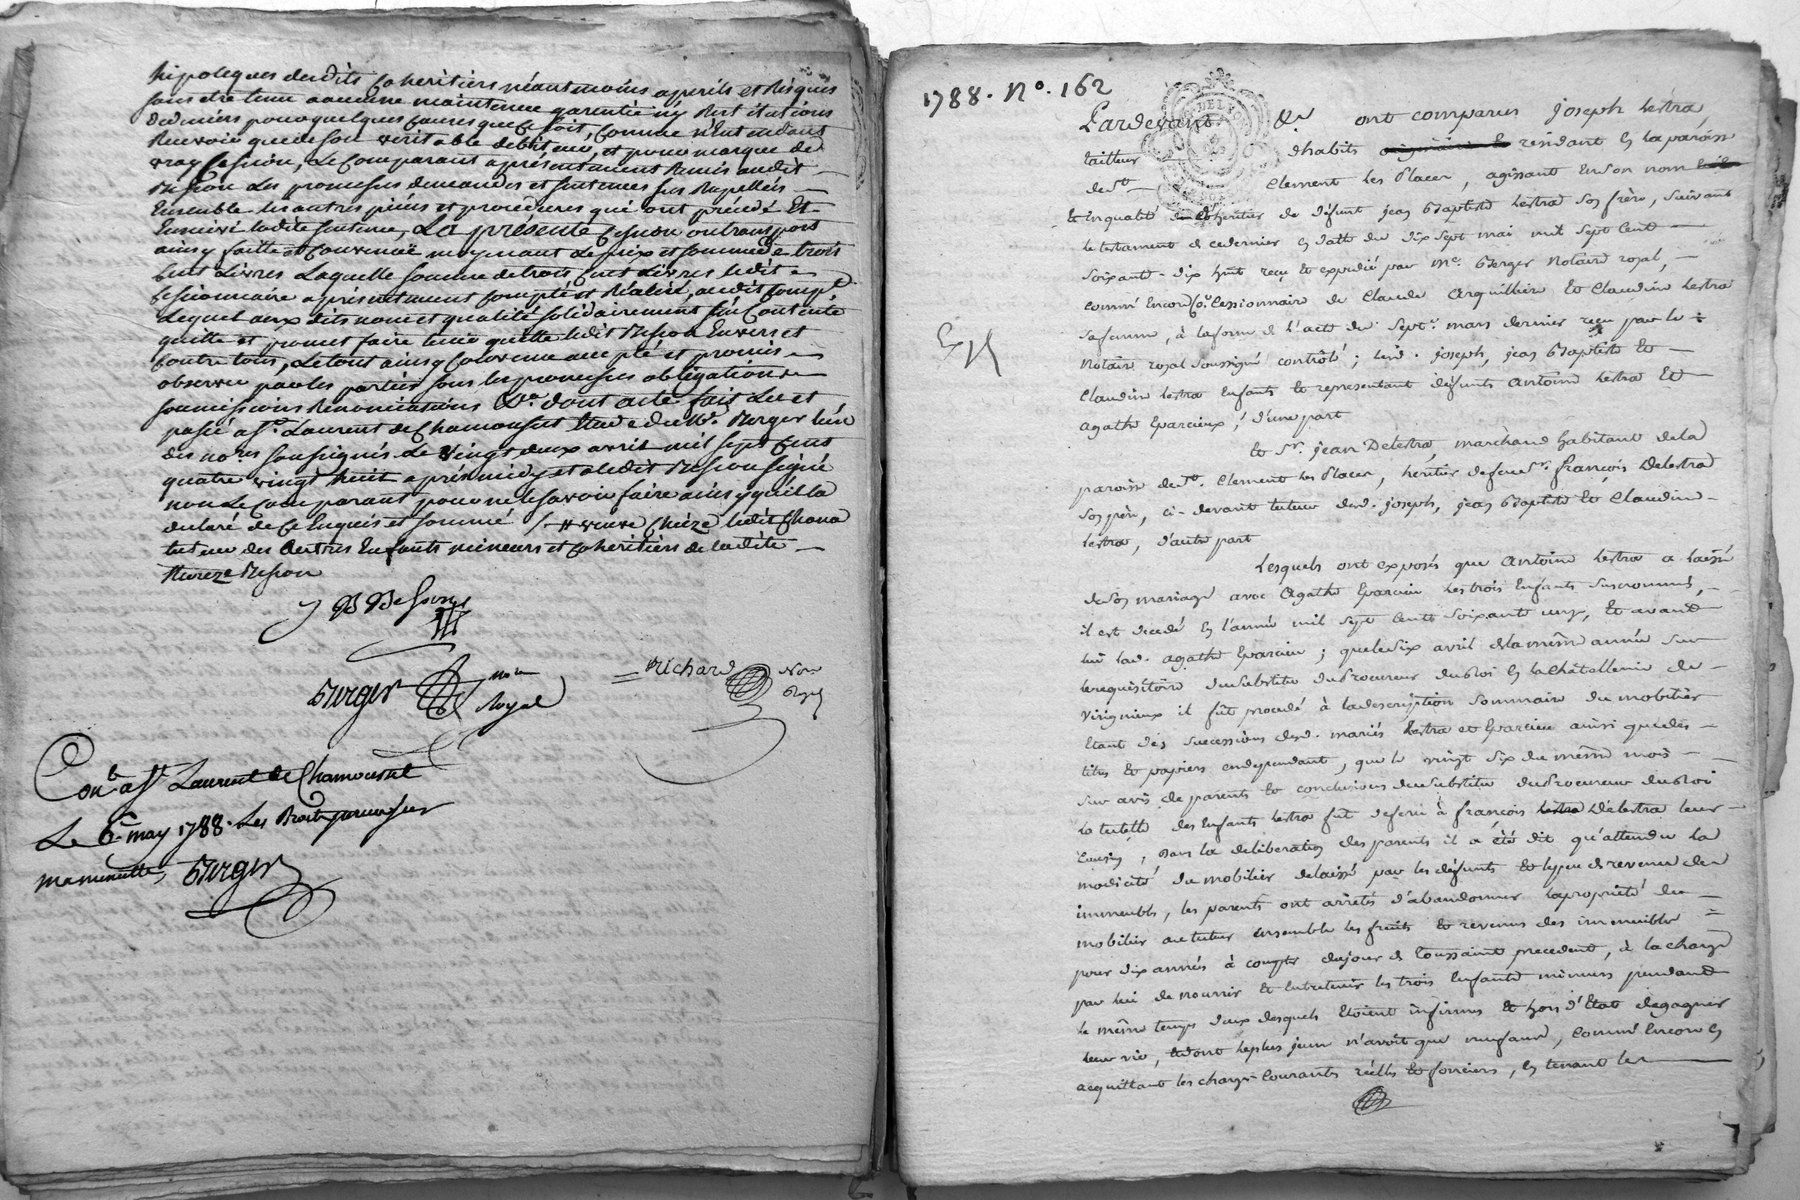 hipoteques desdits coheritiers néantmoins aperils et Risques
sans etre tenu aaucune maintenue garentie ny Restitutions
dedeniers pour quelques causes que ce soit, comme n'Entendant
Recevoir que de son veritable debiteur, et pour marque de
vray Cession, Le Comparant a présentement Remis audit
Besson Les promesses demandes et sentences sus Rapellées
Ensemble les autres pièces et procedures qui ont précédé Et
Ensuivi ladite sentence, La présente Cession ou transport
ainsy faitte et Convenüe moyenant Le prix et somme de trois
Cent Livres Laquelle somme de trois Cent Livres ledit
Cessionnaire a présentement Compté et Réalisé, audit
Lequel aux dits nom et qualité solidairement s'en Contente
quitte et promet faire tenir quitte ledit Besson Envers et
Contre tous, Le tout ainsy Convenu accepté et promis
observer par les parties sous les promesses obligations
soumissions Renonciations &a. dont acte fait Lu et
passé a St. Laurent de Chamousset Etude de Me. Berger L'un
des nores soussignés Le vingt deux avril mil sept Cent
quatre vingt huit aprés midy et aledit Besson signé
non Le Comparant pour ne le savoir faire ainsy qu'il la
declaré de Ce Enquis et sommé /-# veuve Chieze ledit
tuteur des Autres Enfants mineurs et Coheritiers de ladite
Besson
J B Besson
Berger Nore Royal
Richard Nore Royal
Conlé a St Laurent de Chamousset
Le 6e may 1788. Les Droits percus sur
ma minutte, Berger
1788. No. 162
Pardevant &a ont comparus joseph Lestra
tailleur dhabits résidant en la paroisse
de St. Clement les Places, agissant en son nom
Et En qualité d'héritier de défunt jean Baptiste Lestra son frère, suivant
le testament de cedernier en datte du dix sept mai mil sept Cent
soixante-dix huit reçu Et expedié par me. Berger Notaire royal,
comme Encore Cessionnaire de Claude Arquillier Et Claudine Lestra
safemme, à la forme de l'acte du sept mars dernier reçu par le
Notaire royal soussigné contrôlé; lesd. joseph, jean Baptiste Et
Claudine Lestra Enfants Et representant défunts Antoine Lestra Et
agathe Eparcieux, d'une part
Et Sr. jean Delestra, marchand habitant de la
paroisse de St. Clement les Places, héritier de feu Sr. françois Delestra
son père, ci-devant tuteur desd. joseph, jean Baptiste Et Claudine
Lestra, d'autre part
Lesquels ont exposés que Antoine Lestra a laissé
de son mariage avec Agathe Eparcieu les trois Enfants susnommés,
il est decedé en l'année mil sept Cent soixante un, Et avant
lui lad. agathe Eparcieu; que le six avril de la même année sur
le requisitoire du substitut du Procureur du Roi en la Châtellenie de
Virignieux il fut procedé à la description sommaire du mobilier
Etant des successions desd. mariés Lestra et Eparcieu ainsi que des
titres Et papiers en dependant, que le vingt six du même mois
sur avis de parents Et conclusions du substitut du Procureur du Roi
la tutelle des Enfants Lestra fut deferée à françois Delestra leur
Cousin, Dans la deliberation des parents il a été dit qu'attendu la
modicité du mobilier delaissé par les défunts Et le peu de revenu des
immeubles, les parents ont arrêtés d'abandonner la propriété du
mobilier au tuteur ensemble les fruits Et revenus des immeubles
pour dix années à compter du jour de Toussaint precedent, à la charge
par lui de nourrir Et Entretenir les trois Enfants mineurs pendant
le même temps deux desquels Etoient infirmes Et hors d'Etat degagner
leur vie, Et dont le plus jeune n'avoit que neuf ans, comme Encore en
acquittant les charges Courantes réelles Et foncieres, en tenant les